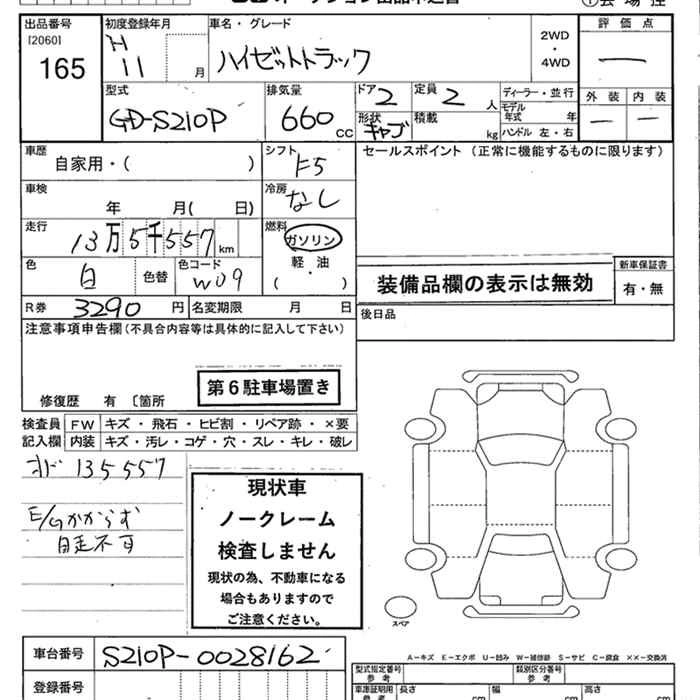 出品番号
[2060]
165
初度登録年月
H
11 月
車名・グレード
ハイゼットトラック
2WD
・
4WD
評価点
—
型式
GD-S210P
排気量
660 CC
ドア 2
定員 2 人
形状 キャブ
積載 kg
ディーラー・並行
モデル年式 年
ハンドル 左・右
外装 内装
— —
車歴
自家用・( )
シフト
F5
セールスポイント (正常に機能するものに限ります)
車検
年 月( 日)
冷房
なし
走行
13万5千557km
燃料
ガソリン
軽・油
( )
色
白
色替
色コード
W09
装備品欄の表示は無効
新車保証書
有・無
R券 3290 円
名変期限 月 日
後日品
注意事項申告欄(不具合内容等は具体的に記入して下さい)
第6駐車場置き
修復歴 有 〔箇所
検査員
記入欄
FW キズ・飛石・ヒビ割・リペア跡・×要
内装 キズ・汚レ・コゲ・穴・スレ・キレ・破レ
オド 135557
E/Gかからず
自走不可
現状車
ノークレーム
検査しません
現状の為、不動車になる
場合もありますので
ご注意ください。
スペア
A−キズ E−エクボ U−凹み W−補修跡 S−サビ C−腐食 ××−交換済
車台番号 S210P-0028162
登録番号
型式指定番号
参考
類別区分番号
参考
車庫証明用
参考
長さ cm
幅 cm
高さ cm